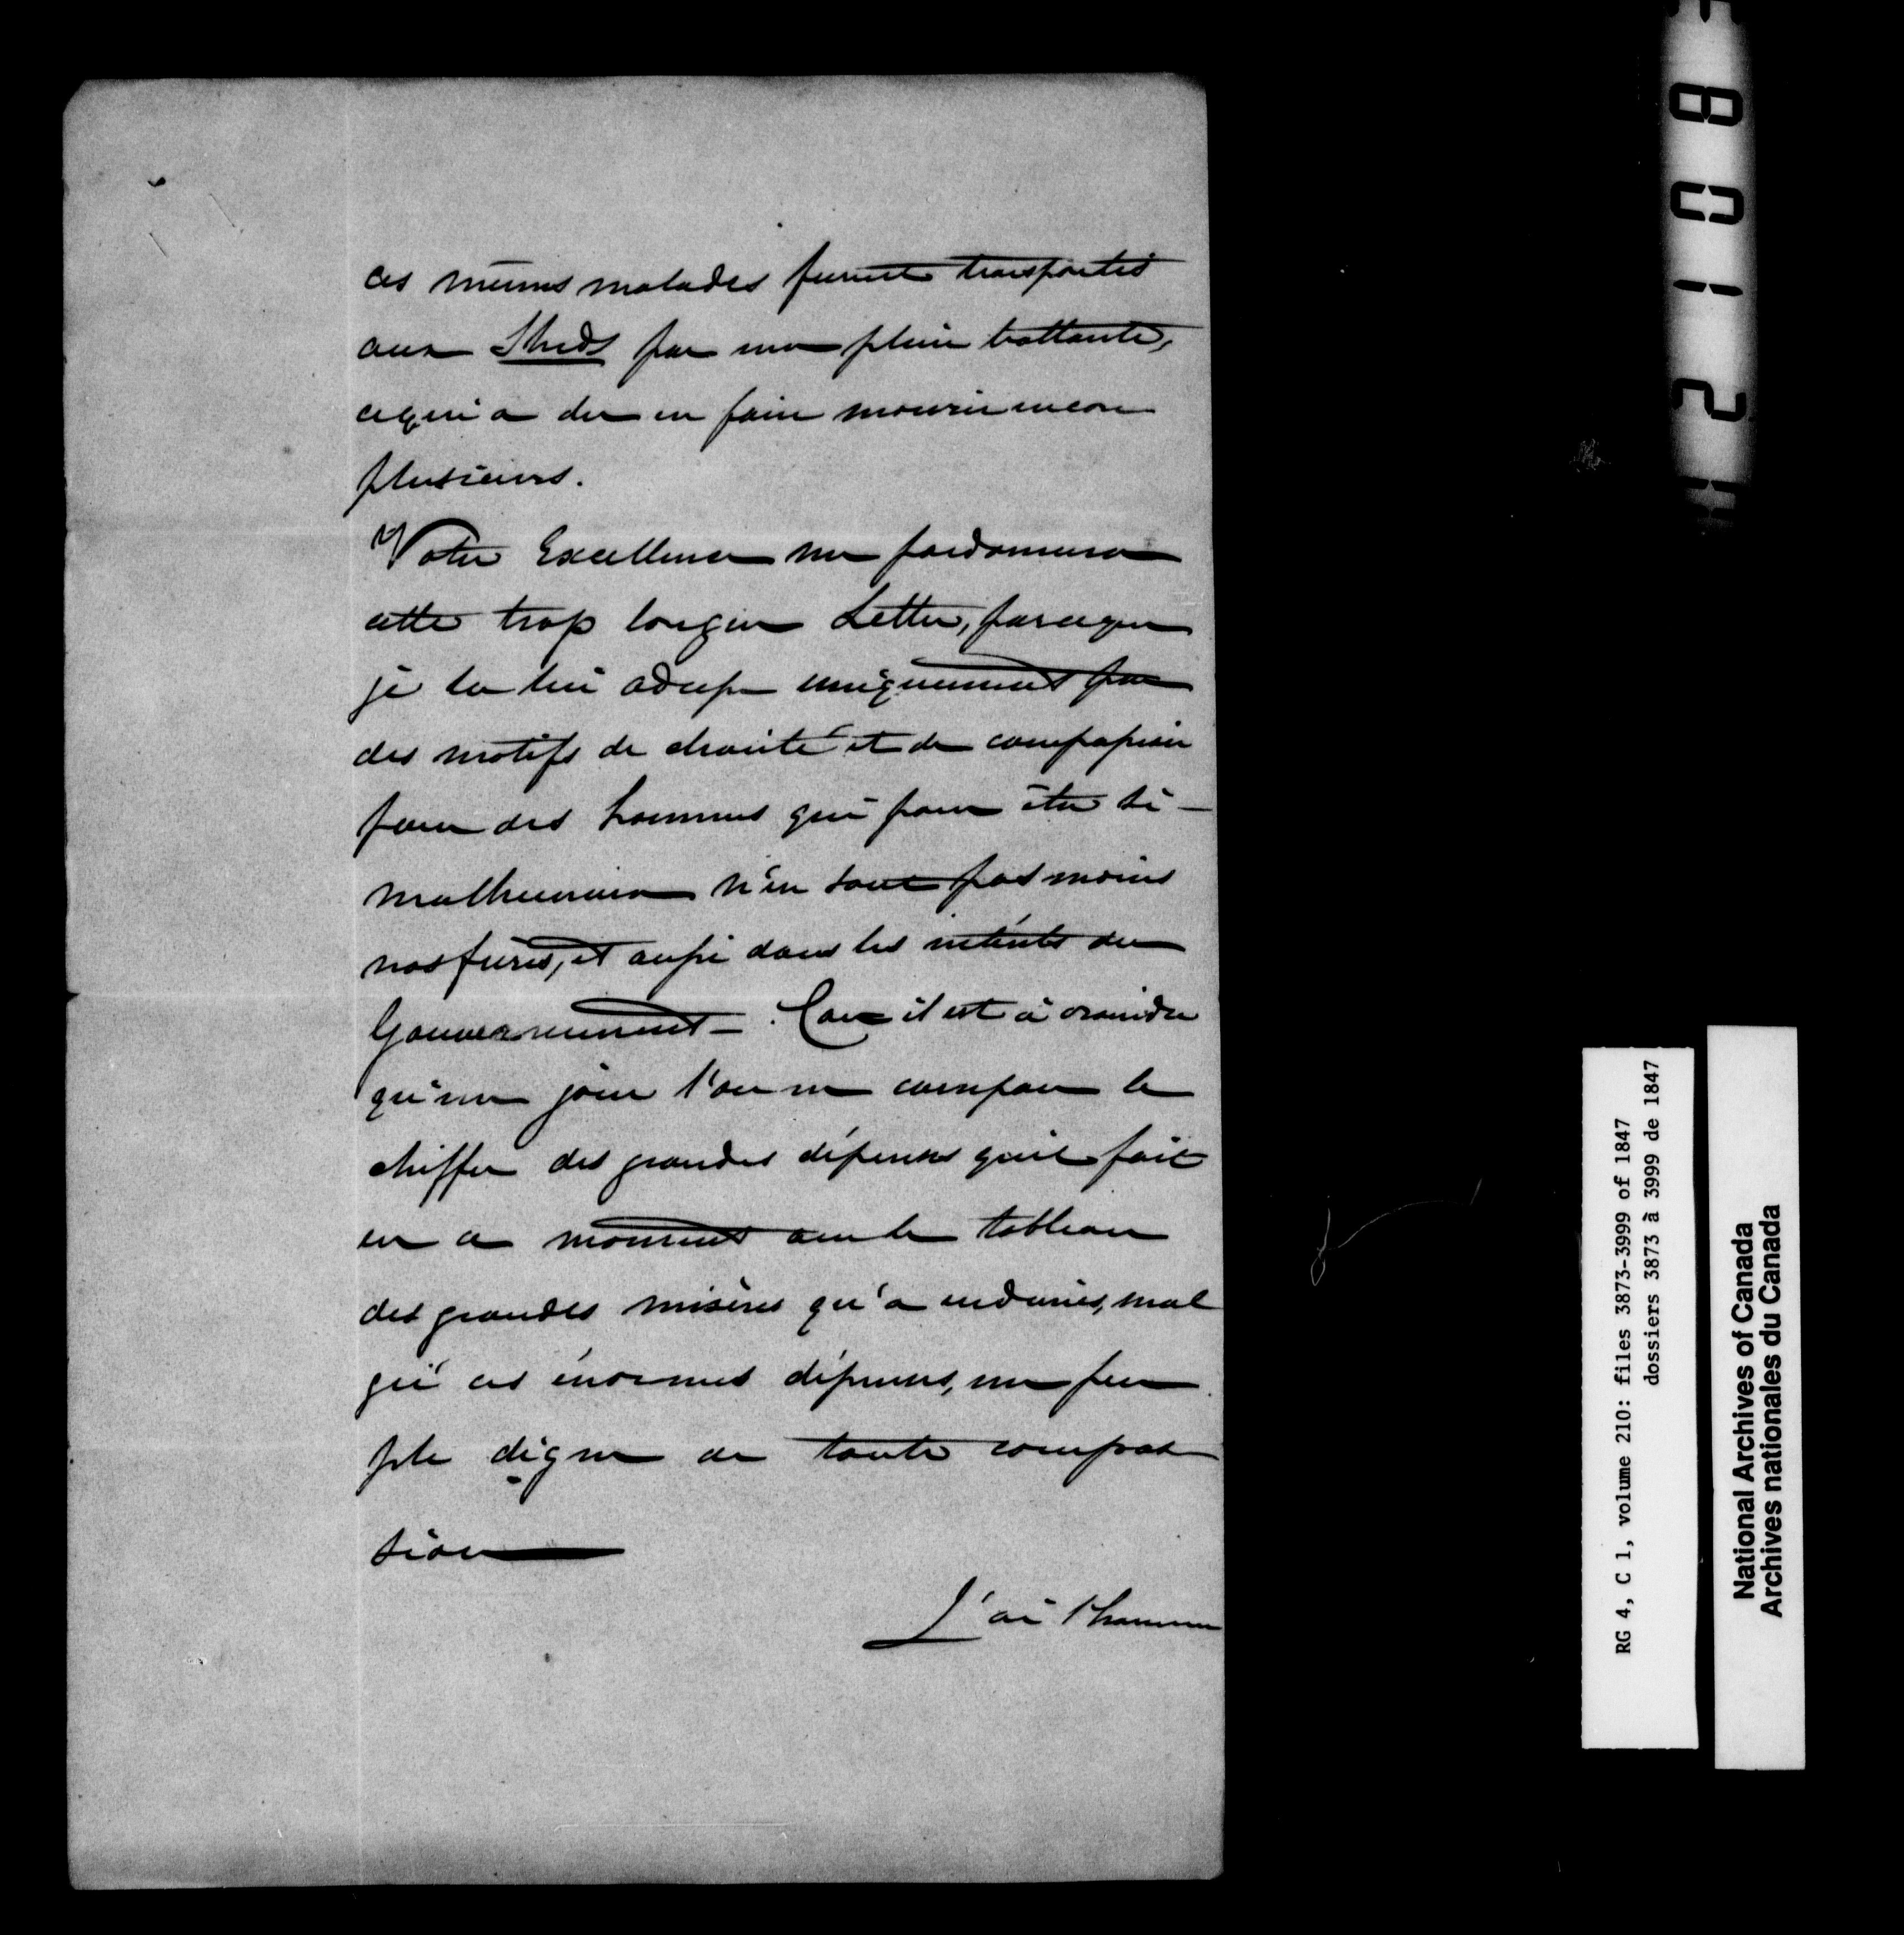 ces mêmes malades furent transportés
aux Sheds par une pluie battante,
ce qui a du en faire mourir encore
plusieurs.
Votre Excellence me pardonnera
cette trop longue Lettre, parceque
je la lui adresse uniquement par
des motifs de charité et de compassion
pour des hommes qui pour être si
malheureux n'en sont pas moins
nos frères, et aussi dans les intérêts du
Gouvernement. Car il est à craindre
qu'un jour l'on ne compare le
chiffre des grandes dépenses qu'il fait
en ce moment avec le tableau
des grandes misères qu'a endurées, mal
gré ces énormes dépenses, un peu
ple digne de toute compas
sion
J'ai l'honneur
21108
RG 4, C 1, volume 210: files 3873-3999 of 1847
dossiers 3873 à 3999 de 1847
National Archives of Canada
Archives nationales du Canada